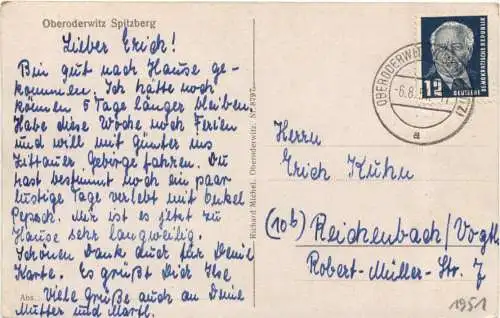 Oberoderwitz Spitzberg
Lieber Erich!
Bin gut nach Hause ge-
kommen. Ich hätte noch
können 5 Tage länger bleiben.
Habe diese Woche noch Ferien
und will mit Günter ins
Zittauer Gebirge fahren. Du
hast bestimmt noch ein paar
lustige Tage verlebt mit Onkel
Mir ist es jetzt zu
Hause sehr langweilig.
Schönen Dank auch für Deine
Karte. Es grüßt Dich Ilse
Abs.
Viele Grüße auch an Deine
Mutter und Martl.
Richard Michel, Oberoderwitz. Nr.
12
DEUTSCHE
DEMOKRATISCHE REPUBLIK
OBERODERWITZ
-6.8.
a
Herrn
Erich Kuhn
(10b) Reichenbach/Vogtl
Robert-Müller-Str. 7
1951